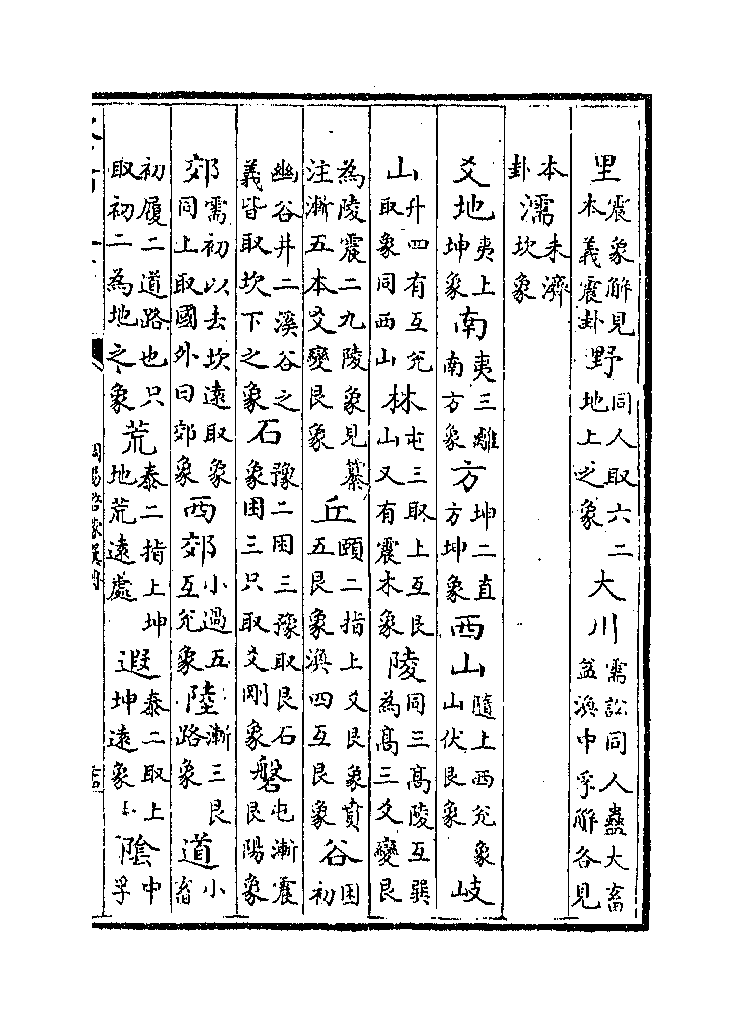 里震象解見本義震卦野同人取六二地上之象大川需訟同人蠱大畜益渙中孚解各見
本卦濡未濟坎象
爻地夷上坤象南夷三離南方象方坤二直方坤象西山隨上西兊象山伏艮象岐
山升四有互兊取象同西山林屯三取上互艮山又有震木象陵同三髙陵互巽為髙三爻變艮
為陵震二九陵象見纂注漸五本爻變艮象丘頤二指上爻艮象賁五艮象渙四互艮象谷困初
幽谷井二溪谷之義皆取坎下之象石豫二困三豫取艮石象困三只取爻剛象磐屯漸震艮陽象
郊需初以去坎遠取象同上取國外曰郊象西郊小過五互兊象陸漸三艮路象道小畜
初履二道路也只取初二為地之象荒泰二指上坤地荒遠處遐泰二取上坤遠象陰中孚